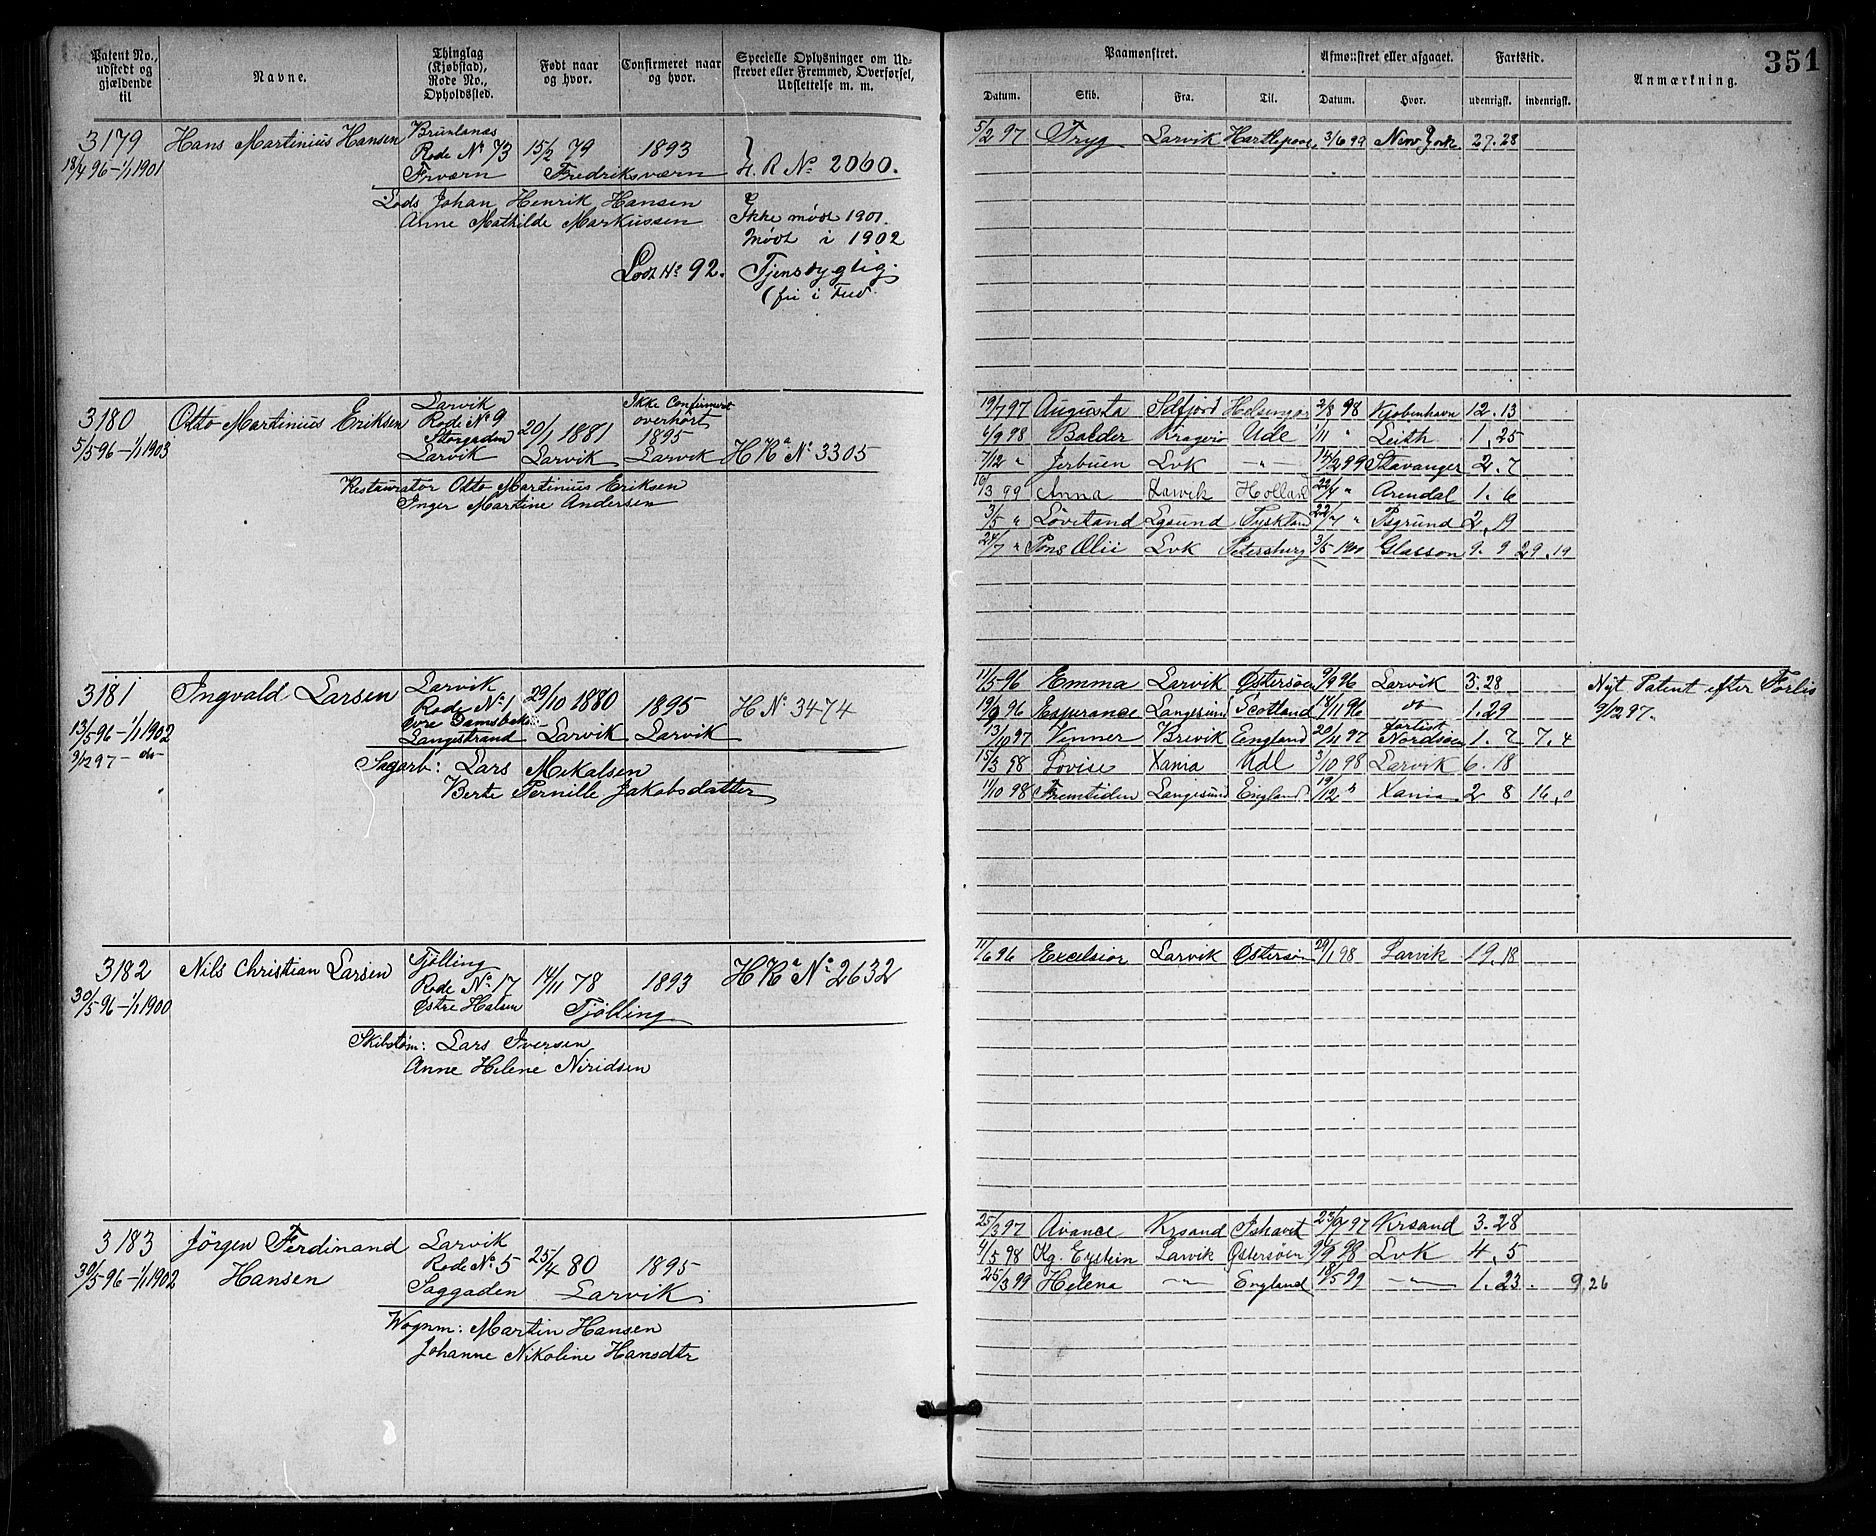 351
Patent No., udstedt og gjældende til
Navne.
Thinglag (Kjøbstad), Rode No., Opholdssted.
Født naar og hvor.
Confirmeret naar og hvor.
Specielle Oplysninger om Udstrevet eller Fremmed, Overførsel, Udslettelse m. m.
Paamønstret.
Afmønstret eller afgaaet.
Fartstid.
Anmærkning.
Datum. Skib. Fra. Til. Datum. Hvor. udenrigsk. indenrigsk.
3179 Hans Martinius Hansen
18/4 96 – 1/1 1901
Brunlanæs
Rode No 73
Frværn
15/2 79 1893
Fredriksværn
H. R No 2060.
Lods Johan Henrik Hansen
Anne Mathilde Markussen
Ikke mødt 1901.
Mødt i 1902
Lodt No 92. Tjenstdygtig.
5/2 97 Tryg Larvik Hartlepool 3/6 99 New York 27.28
3180 Otto Martinius Eriksen
5/5 96 – 1/1 1903
Larvik
Rode No 9
Storgaden
Larvik
20/1 1881
Larvik
Ikke Confirmert
overhørt
1895
Larvik
H Ra No 3305
Restauratør Otto Martinius Eriksen
Inger Martine Andersen
19/7 97 Augusta Idfjord Helsingør 2/8 98 Kjøbenhavn 12.13
6/9 98 Balder Kragerø Ude 1/11 " Leith 1.25
7/12 " Jerbuen Lvk – " – 14/2 99 Stavanger 2.7
16/3 99 Anna Larvik Holland 22/4 " Arendal 1.6
3/5 " Løvetand Lgsund Tyskland 22/7 " Psgrund 2.19
24/7 " Pons Ælii Lvk Petersburg 3/5 1900 Glasson 9.9 29.19
3181 Ingvald Larsen
13/5 96 – 1/1 1902
9/12 97 – do –
Larvik
Rode No 1
Øvre Damsbakken
Langestrand
29/10 1880
Larvik
1895
Larvik
H No 3474
Sagarb: Lars Mikalsen
Berte Pernille Jakobsdatter
11/5 96 Emma Larvik Østersøen 9/9 96 Larvik 3.28
19/9 96 Esperance Langesund Scotland 18/11 96 do 1.29
13/10 97 Venner Brevik England 20/11 97 forlist Nordsøen 1.7 7.4
15/3 98 Lovise Xania Udl 3/10 98 Larvik 6.18
11/10 98 Fremtiden Langesund England 19/12 " Xania 2 8 16.0
Nyt Patent efter Forlis
9/12 97.
3182 Nils Christian Larsen
30/5 96 – 1/1 1900
Tjølling
Rode No 17
Østre Halsen
14/11 78 1893
Tjølling
H Ra No 2632
Skibstøm: Lars Iversen
Anne Helene Niridsen
11/6 96 Excelsior Larvik Østersøn 29/1 98 Larvik 19.18
3183 Jørgen Ferdinand
Hansen
30/5 96 – 1/1 1902
Larvik
Rode No 5
Saggaden
25/4 80 1895
Larvik
Wognm: Martin Hansen
Johanne Nikoline Hansdtr
25/3 97 Avance Krsand Ishavet 23/7 97 Krsand 3.28
4/5 98 Kg. Eystein Larvik Østersøen 9/9 98 Lvk 4.5
25/3 99 Helena – " – England 18/5 99 – " – 1.23. 9,26